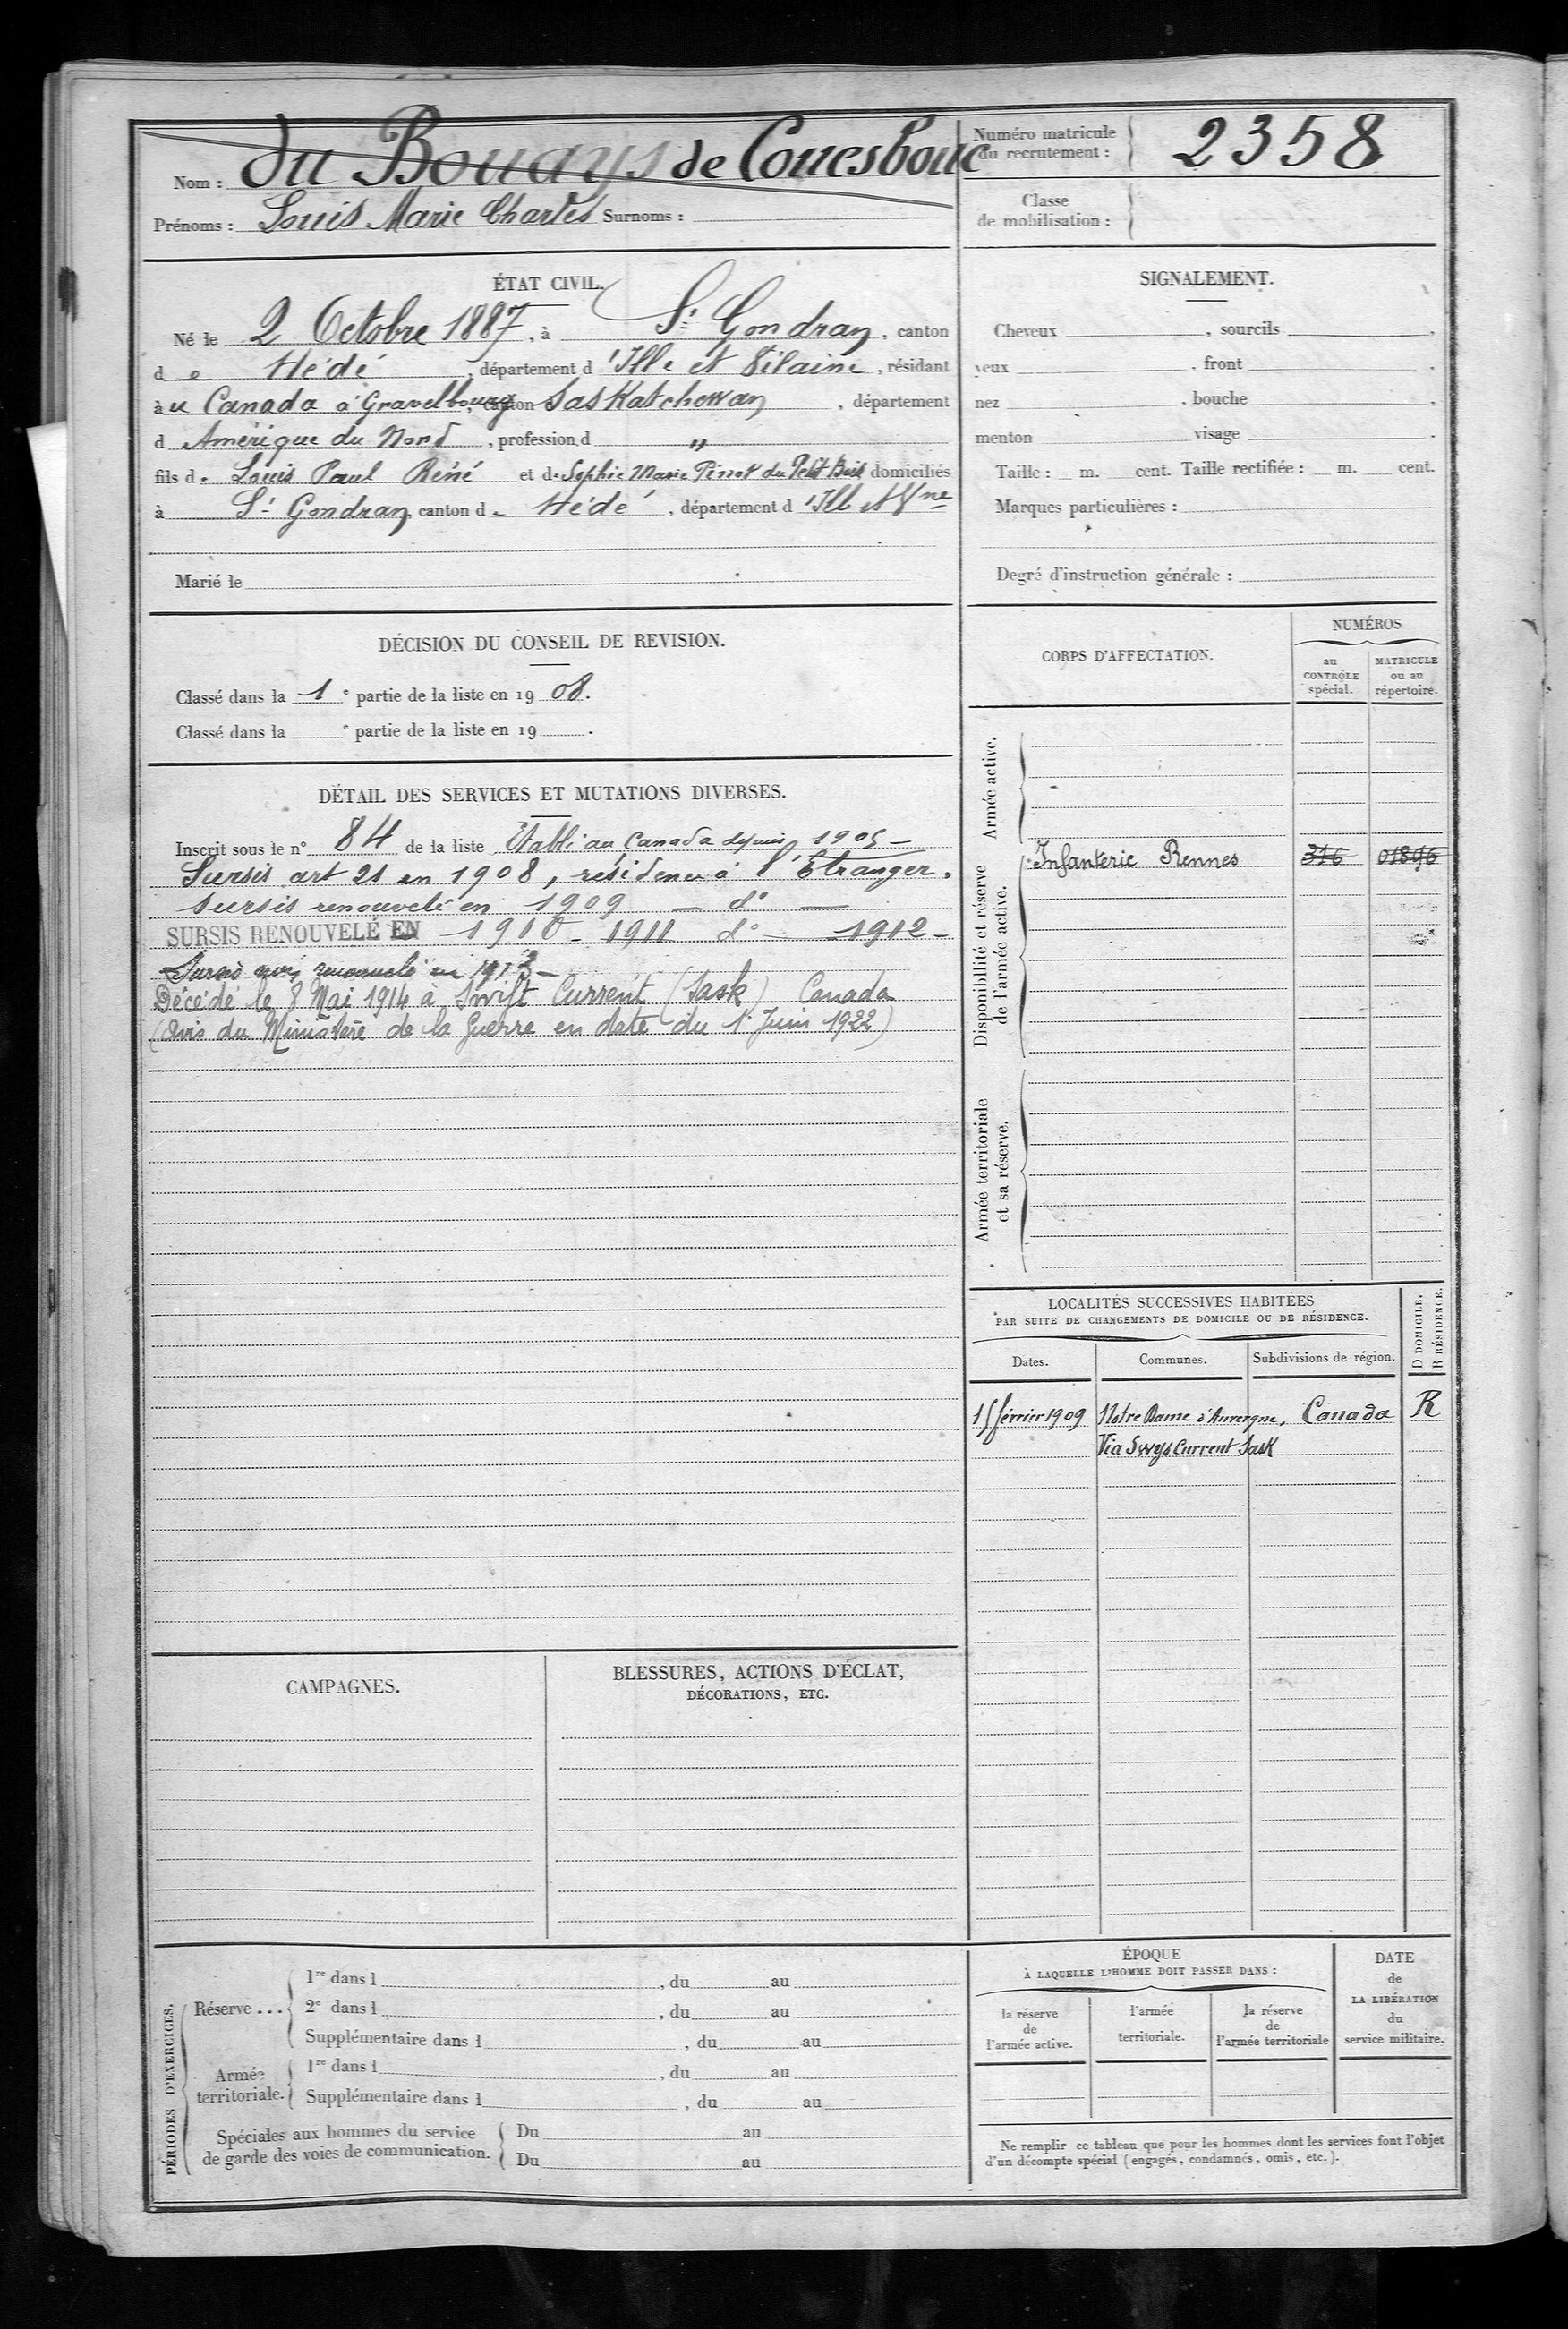 Nom : du Bouays de Couesbouc
Prénoms : Louis Marie Charles Surnoms :
Numéro matricule
du recrutement : 2358
Classe
de mobilisation :
ÉTAT CIVIL.
Né le 2 Octobre 1887, à St Gondran, canton
de Hédé, département d'Ille et Vilaine, résidant
au Canada à Gravelbourg, canton Saskatchewan, département
d Amérique du Nord, profession d "
fils de Louis Paul Réné et de Sophie Marie Pinot du Petit Bois domiciliés
à St Gondran, canton de Hédé, département d'Ille et Vne
Marié le
SIGNALEMENT.
Cheveux , sourcils ,
yeux , front ,
nez , bouche ,
menton visage .
Taille : m. cent. Taille rectifiée : m. cent.
Marques particulières :
Degré d'instruction générale :
DÉCISION DU CONSEIL DE REVISION.
Classé dans la 1e partie de la liste en 1908.
Classé dans la e partie de la liste en 19 .
DÉTAIL DES SERVICES ET MUTATIONS DIVERSES.
Inscrit sous le n° 84 de la liste Établi au Canada depuis 1905 -
Sursis art 21 en 1908, résidence à l'Étranger.
Sursis renouvelé en 1909 — d° —
SURSIS RENOUVELÉ EN 1910 - 1911 d° — 1912 -
Sursis non renouvelé en 1913 -
Décédé le 8 Mai 1914 à Swift Current (Sask) Canada
(Avis du Ministère de la Guerre en date du 1er Juin 1922)
CORPS D'AFFECTATION.
NUMÉROS
au
CONTRÔLE
spécial.
MATRICULE
ou au
répertoire.
Armée active.
Disponibilité et réserve
de l'armée active.
Infanterie Rennes 316 01896
Armée territoriale
et sa réserve.
LOCALITÉS SUCCESSIVES HABITÉES
PAR SUITE DE CHANGEMENTS DE DOMICILE OU DE RÉSIDENCE.
D DOMICILE.
R RÉSIDENCE.
Dates. Communes. Subdivisions de région.
15 février 1909 Notre Dame d'Auvergne, Canada R
Via Swys Current Sask
CAMPAGNES.
BLESSURES, ACTIONS D'ÉCLAT,
DÉCORATIONS, ETC.
PÉRIODES D'EXERCICES.
Réserve ...
1re dans l , du au
2e dans l , du au
Supplémentaire dans l , du au
Armée
territoriale.
1re dans l , du au
Supplémentaire dans l , du au
Spéciales aux hommes du service
de garde des voies de communication.
Du au
Du au
ÉPOQUE
À LAQUELLE L'HOMME DOIT PASSER DANS :
la réserve
de
l'armée active.
l'armée
territoriale.
la réserve
de
l'armée territoriale
DATE
de
LA LIBÉRATION
du
service militaire.
Ne remplir ce tableau que pour les hommes dont les services font l'objet
d'un décompte spécial (engagés, condamnés, omis, etc.).